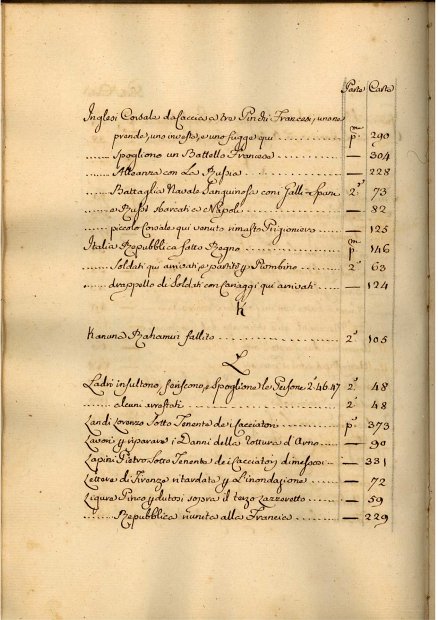 Parte Carte
Inglesi Corsale da Caccia a tre Pindri Francesi, uno ne
prende, uno investe, e uno fugge qui ........ pma 290
...... Spogliono un Battello Francese ........ — 304
...... Alleanza con La Russia ........ — 228
...... Battaglia Navale Sanguinosa con i Galli-Spani 2a 73
...... e Russi sbarcati a Napoli ........ — 82
...... piccolo Corsale qui venuto rimasto Prigioniero ... — 125
Italia Repubblica fatta Regno ........ pma 146
...... Soldati qui arrivati, e partiti p Piombino ........ 2a 63
...... drappello di Soldati con Cariaggi qui arrivati .... — 124
K
Kanuna Rahamin fallito ........ 2a 105
L
Ladri insultono, feriscono, e Spogliono le Persone 2a 46.47 2a 48
...... alcuni arrestati ........ 2a 48
Landi Lorenzo Sotto Tenente de i Cacciatori ........ pa 373
Lavori p riparare i Danni della Rottura d'Arno .... — 90
Lapini Pietro Sotto Tenente de i Cacciatori dimessosi .... — 331
Lettere di Firenze ritardate p L'inondazione ........ — 72
Ligure Pinco p dutosi sopra il terzo Lazzeretto ........ — 59
...... Repubblica riunita alla Francia ........ — 229